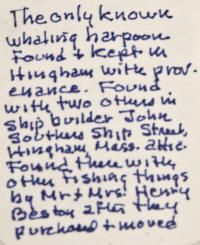 The only known
whaling harpoon
Found & kept in
Hingham with prov-
enance. Found
with two others in
Ship builder John
Souther's Ship Street,
Hingham, Mass. attic.
Found there with
other fishing things
by Mr & Mrs. Henry
Beston after they
purchased & moved